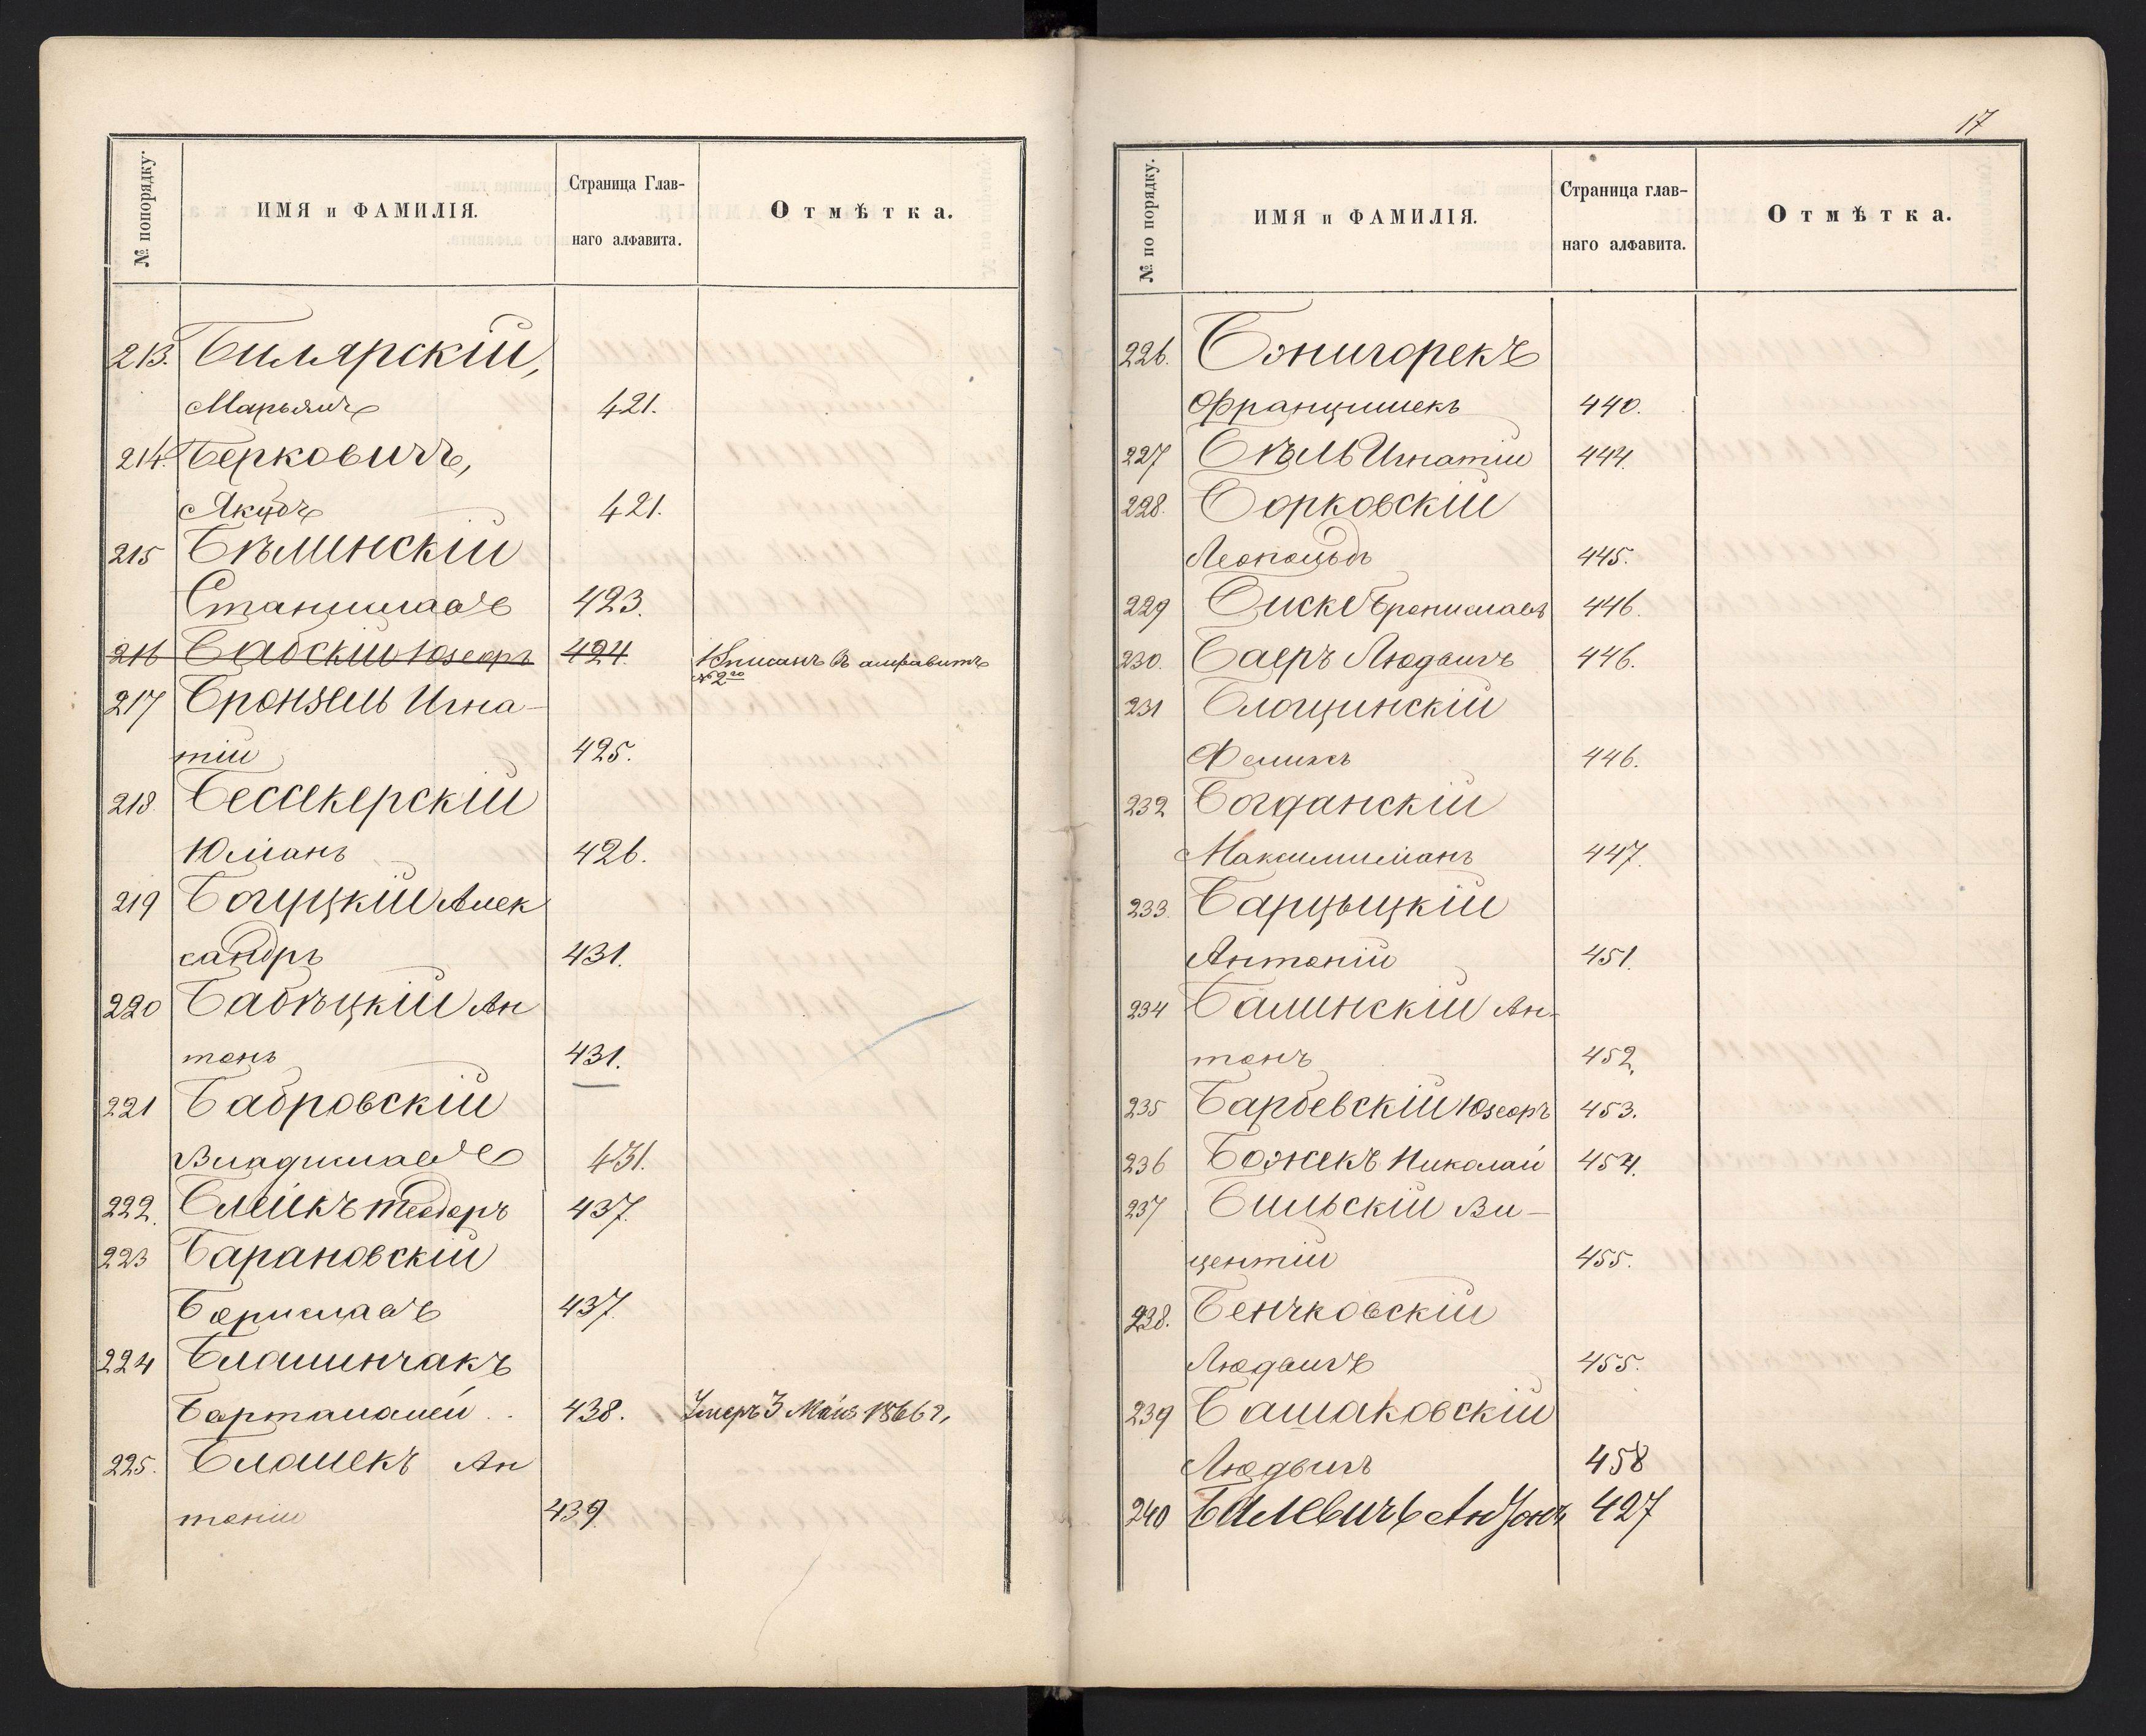 № попорядку.
ИМЯ и ФАМИЛІЯ.
Страница Глав-
наго алфавита.
Отмѣтка.
213. Билярскій,
Марьянъ 421.
214. Берковичъ,
Якубъ 421.
215 Бѣлинскій
Станиславъ 423.
216 Бабскій Юзефъ 424. Вписанъ въ алфавитъ
№ 2го
217 Бронзель Игна-
тій 425.
218. Бессекерскій
Юліанъ 426.
219 Богуцкій Алек
сандръ 431.
220 Бабѣцкій Ан
тонъ 431.
221 Бабровскій
Владиславъ 431.
222. Блейкъ Теодоръ 437.
223 Барановскій
Бориславъ 437.
224 Блашинчакъ
Барталомей 438. Умеръ 3 Мая 1866 г.
225. Блашекъ Ан
тоній 439.
17
№ по порядку.
ИМЯ и ФАМИЛІЯ.
Страница глав-
наго алфавита.
Отмѣтка.
226. Бжнигорекъ
Францишекъ 440.
227 Бѣль Игнатій 444.
228. Борковскій
Леопольдъ 445.
229 Биске Брониславъ 446.
230. Баеръ Людвигъ 446.
231 Блощинскій
Феликсъ 446.
232 Богданскій
Максимиліанъ 447.
233. Барцыцкій
Антоній 451.
234 Балинскій Ан-
тонъ 452.
235 Барбевскій Юзефъ 453.
236 Божекъ Николай 454.
237 Бильскій Ви-
центій 455.
238. Бенчковскій
Людвигъ 455.
239 Башаковскій
Людвигъ 458
240 Балевичъ Антонъ 427